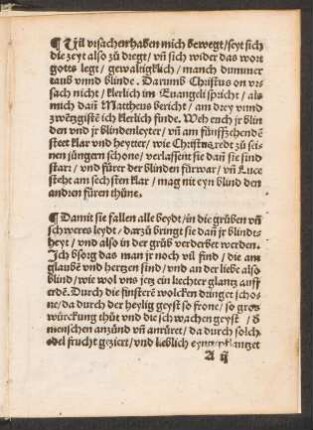 ¶ Vil vrsachen haben mich bewegt/ seyt sich
die zeyt also zů tregt/ vñ sich wider das wort
gotts legt/ gewaltigklich/ manch dummer
taub vnnd blinde. Darumb Christus on vr
sach nicht/ klerlich im Euangeli spricht/ als
mich dañ Mattheus bericht/ am drey vnnd
zwentzigistē ich klerlich finde. Weh euch jr blin
den vnd jr blindenleyter/ vñ am fünfftzehendē
steet klar vnd heytter/ wie Christus redt zů sei
nen jüngern schone/ verlassent sie dañ sie sind
starr/ vnd fürer der blinden fürwar/ vñ Luce
steht am sechsten klar/ mag nit eyn blind den
andren füren thüne.
¶ Damit sie fallen alle beydt/ in die grůben vñ
schweres leydt/ dartzů bringt sie dañ jr blindt
heyt/ vnd also in der grůb verderbet werden.
Ich bsorg das man jr noch vil find/ die am
glaubē vnd hertzen sind/ vnd an der liebe also
blind/ wie wol vns jetz ein liechter glantz auff
erdē. Durch die finsterē wolcken dringet scho
ne/ da durch der heylig geyst so frone/ so gros
würckung thůt vnd die schwachen geyst/ ð
menschen anzünd vñ anrüret/ da durch solch
edel frucht geziert/ vnd lieblich eyngepflantzet
A ij